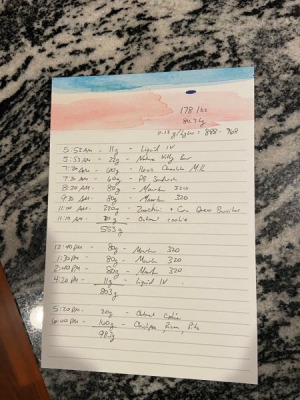 178 lbs
80.7 kg
5:52 AM - 11g - Liquid IV
5:53 AM - 22g - Nature Valley bar
7:30 AM - 40g - Chocolate Milk
7:30 AM - 40g - PB Sandwich
8:20 AM - 80g - Maurten 320
9:30 AM - 80g - Maurten 320
11:00 AM - 220g - Zucchini + Corn Queso Burritos
11:10 AM - g - Oatmeal cookie
553g
12:40 PM - 80g - Maurten 320
1:30 PM - 80g - Maurten 320
2:40 PM - 80g - Maurten 320
4:30 PM - 11g - Liquid IV
803g
5:30 PM - 30g - Oatmeal Cookie
6:00 PM - 160g - Rice, Pita